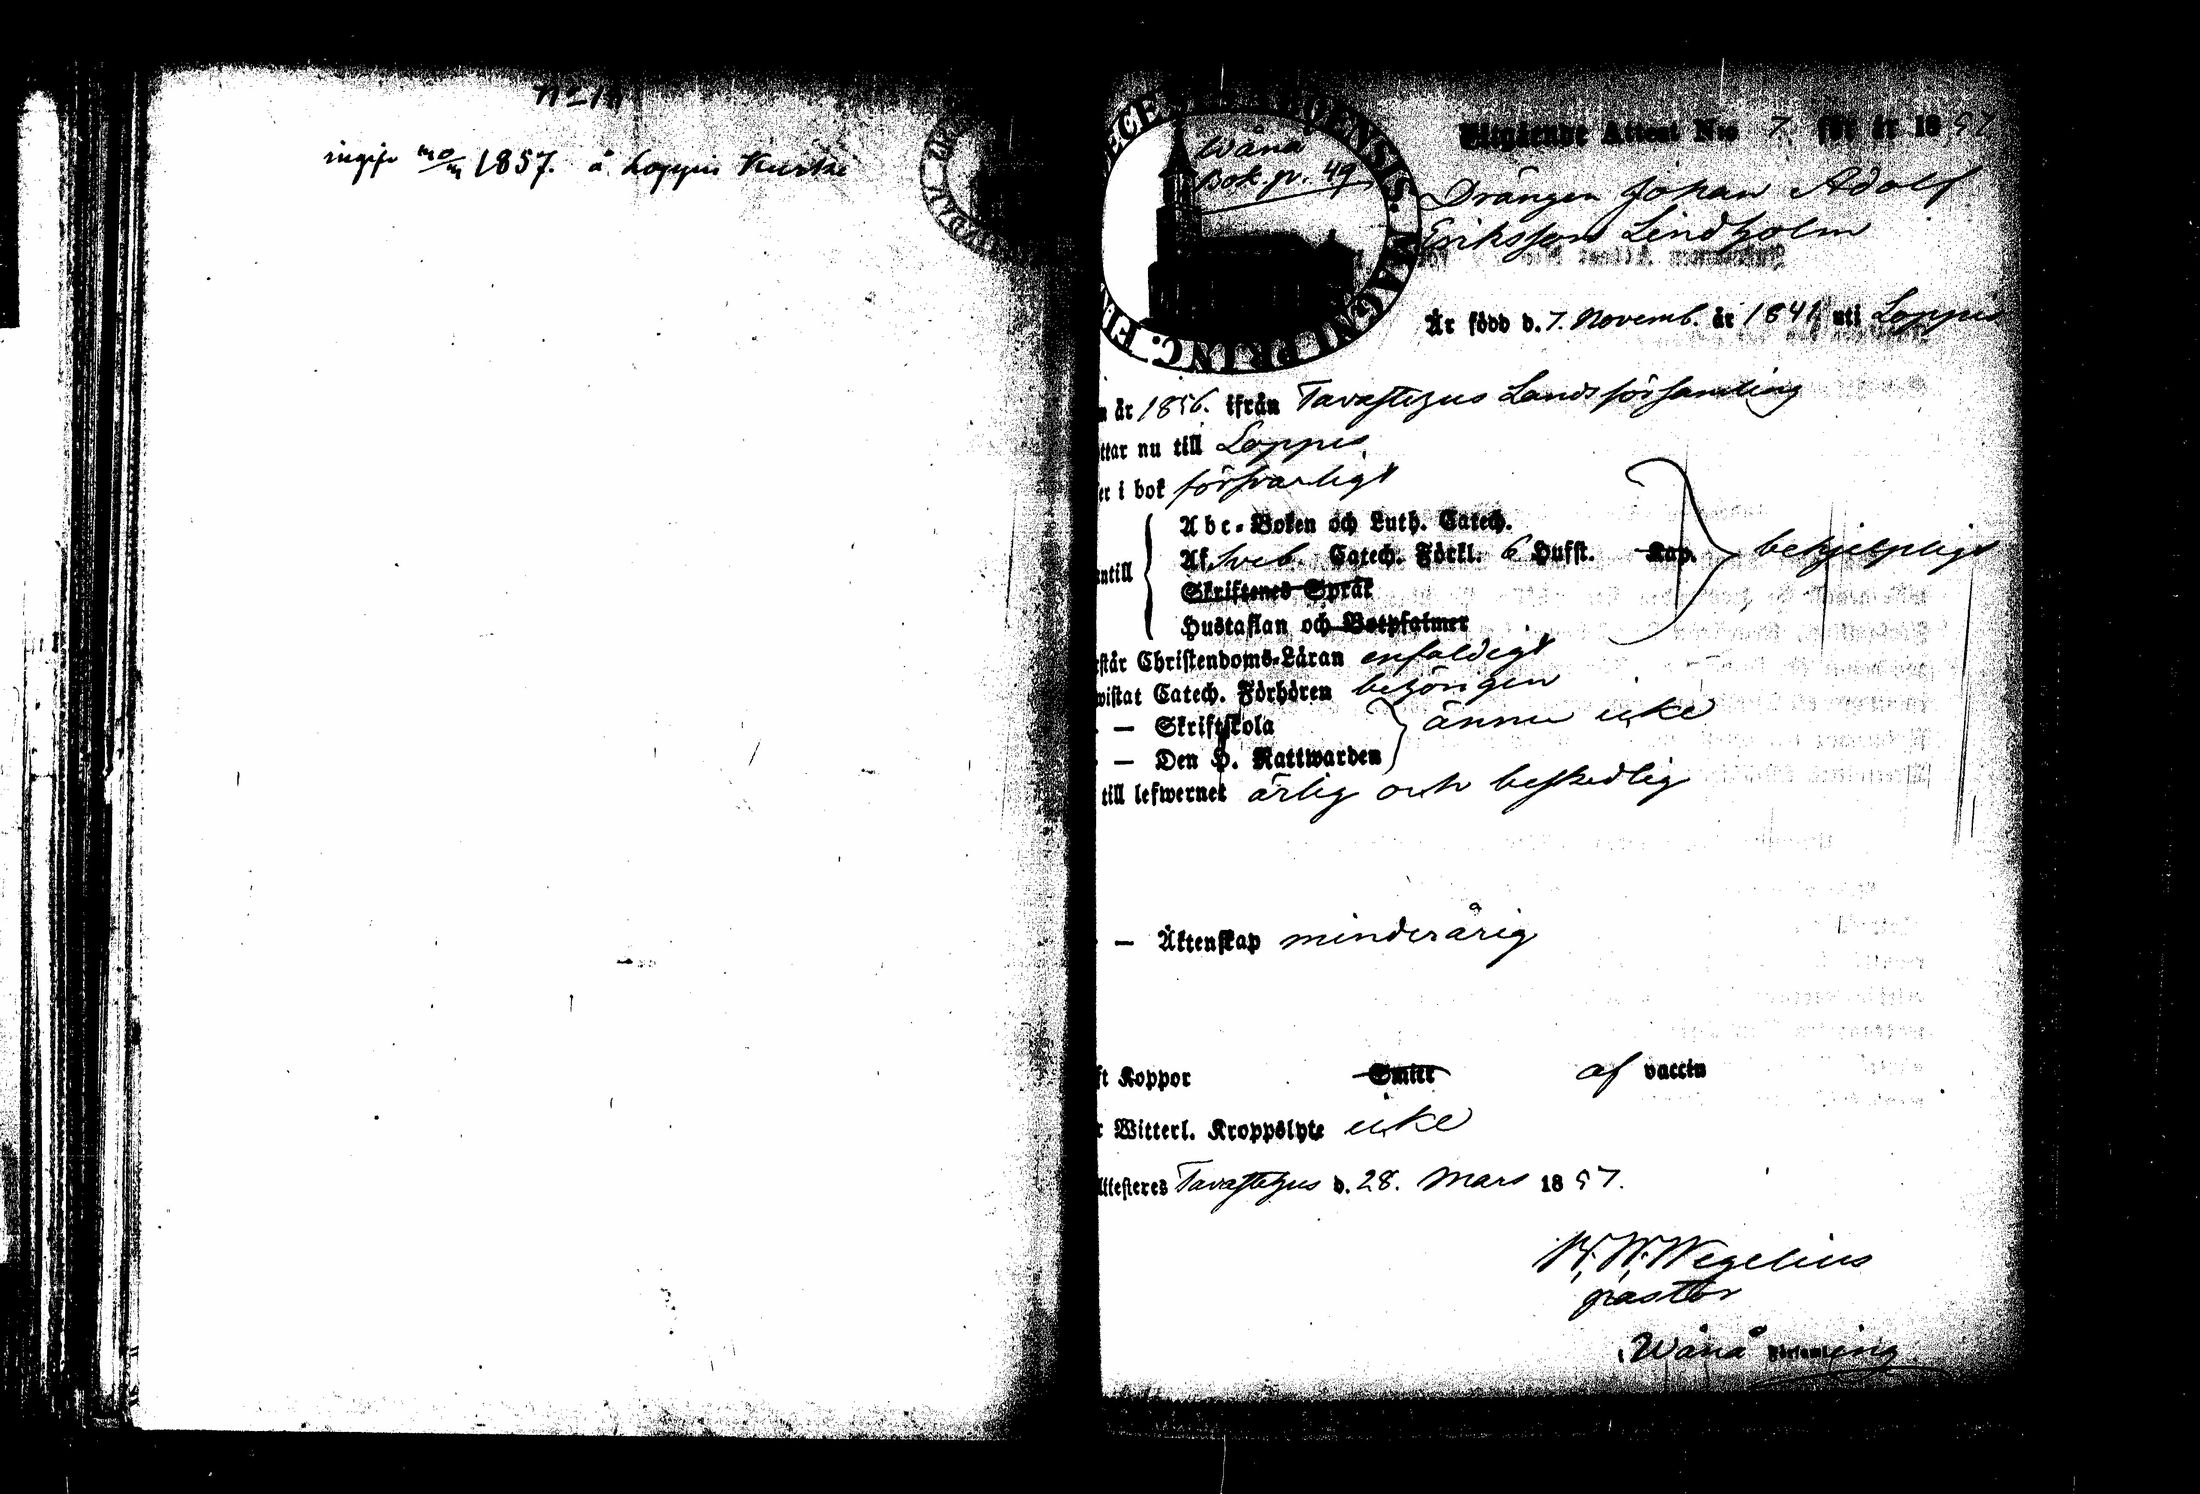 1857. å Loppis Kurkis
Wånå
Bok. pr. 49
Utgående Attest N:o 7. för år 1857
Drängen Johan Adolf
Eriksson Lindholm
Är född d. 7. Novemb. år 1841 uti Loppis
år 1856. ifrån Tavastehus Landsförsamling
ttar nu till Loppis.
er i bok försvarligt
Abc-Boken och Luth. Catech.
Af Sveb. Catech. Förkl. 6 Hufst. Kap. behjelpligt
ntill
Skriftenes Språk
Hustaflan och Botpsalmer
står Christendoms-Läran enfaldigt
wistat Catech. Förhören behörigen
— Skriftskola
ännu icke
— Den H. Nattwarden
till lefwernet ärlig och beskedlig
— Äktenskap minderårig
ft Koppor Smitt af vaccin
r Witterl. Kroppslyte icke
ttesteres Tavastehus d. 28. Mars 1857.
W. Wegelius
pastor
i Wånå Församling